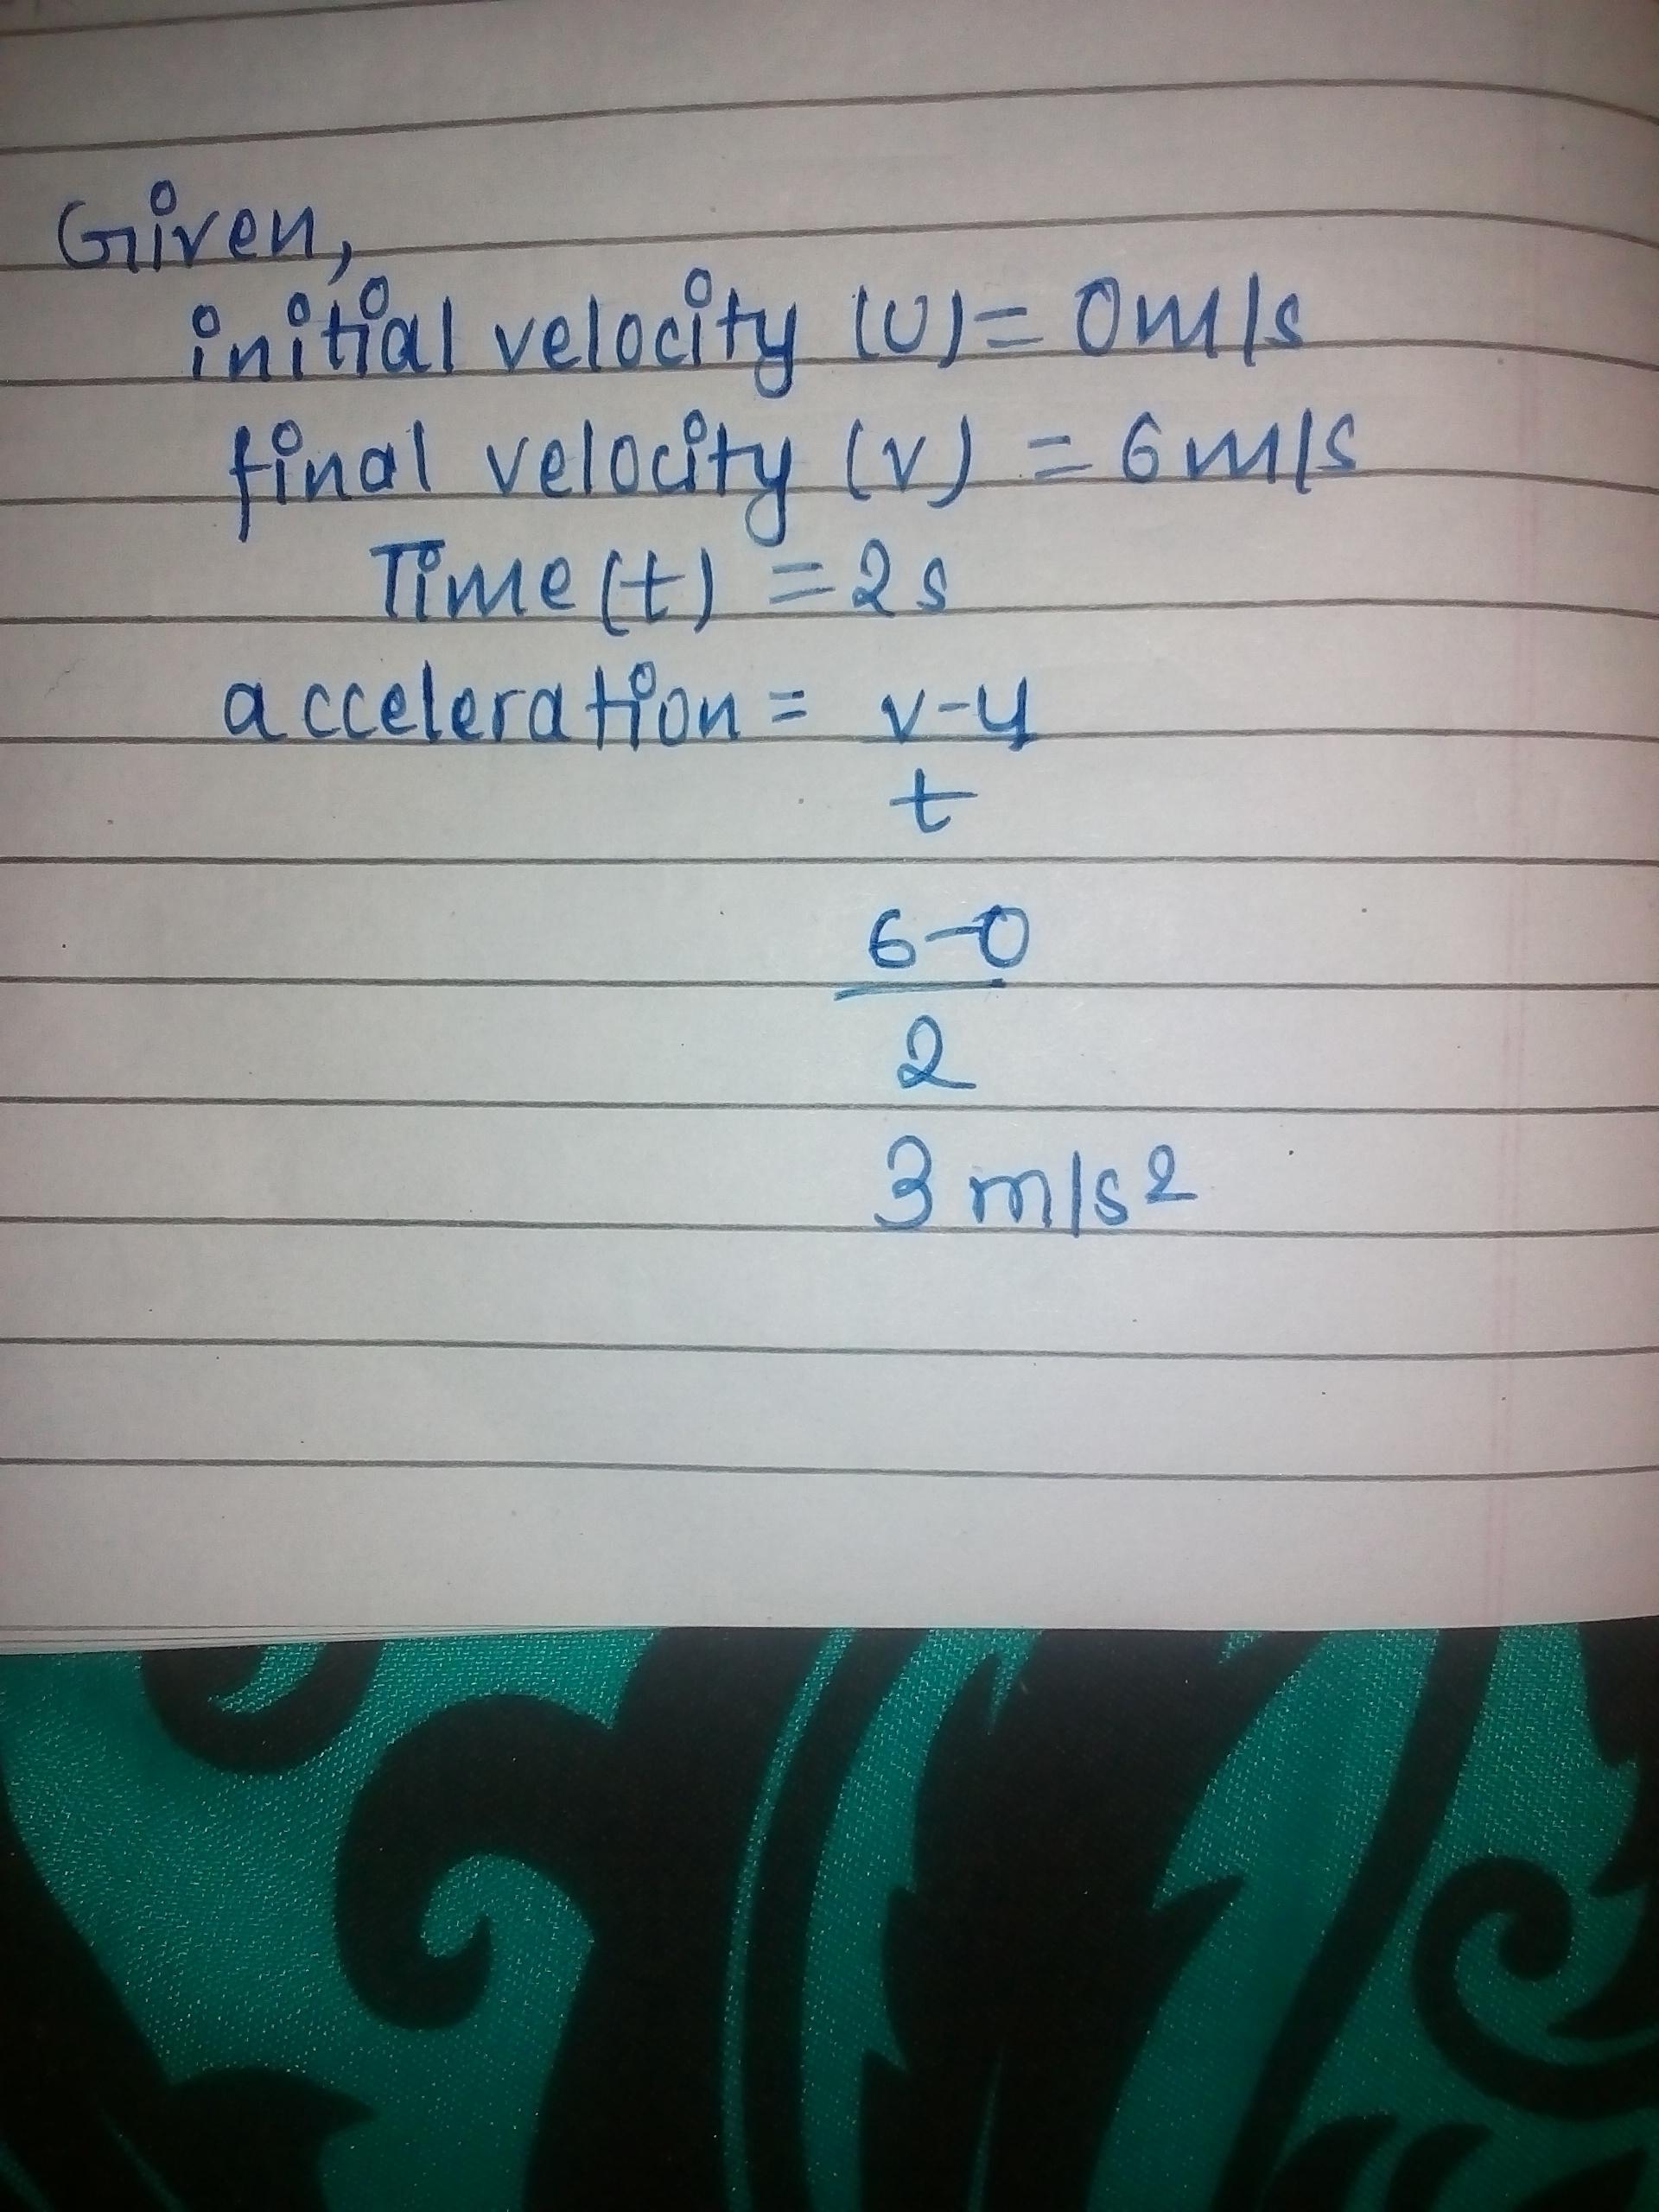 Given,
initial velocity (u) = 0m/s
final velocity (v) = 6m/s
Time (t) = 2s
acceleration = v-u
t
6-0
2
3 m/s2